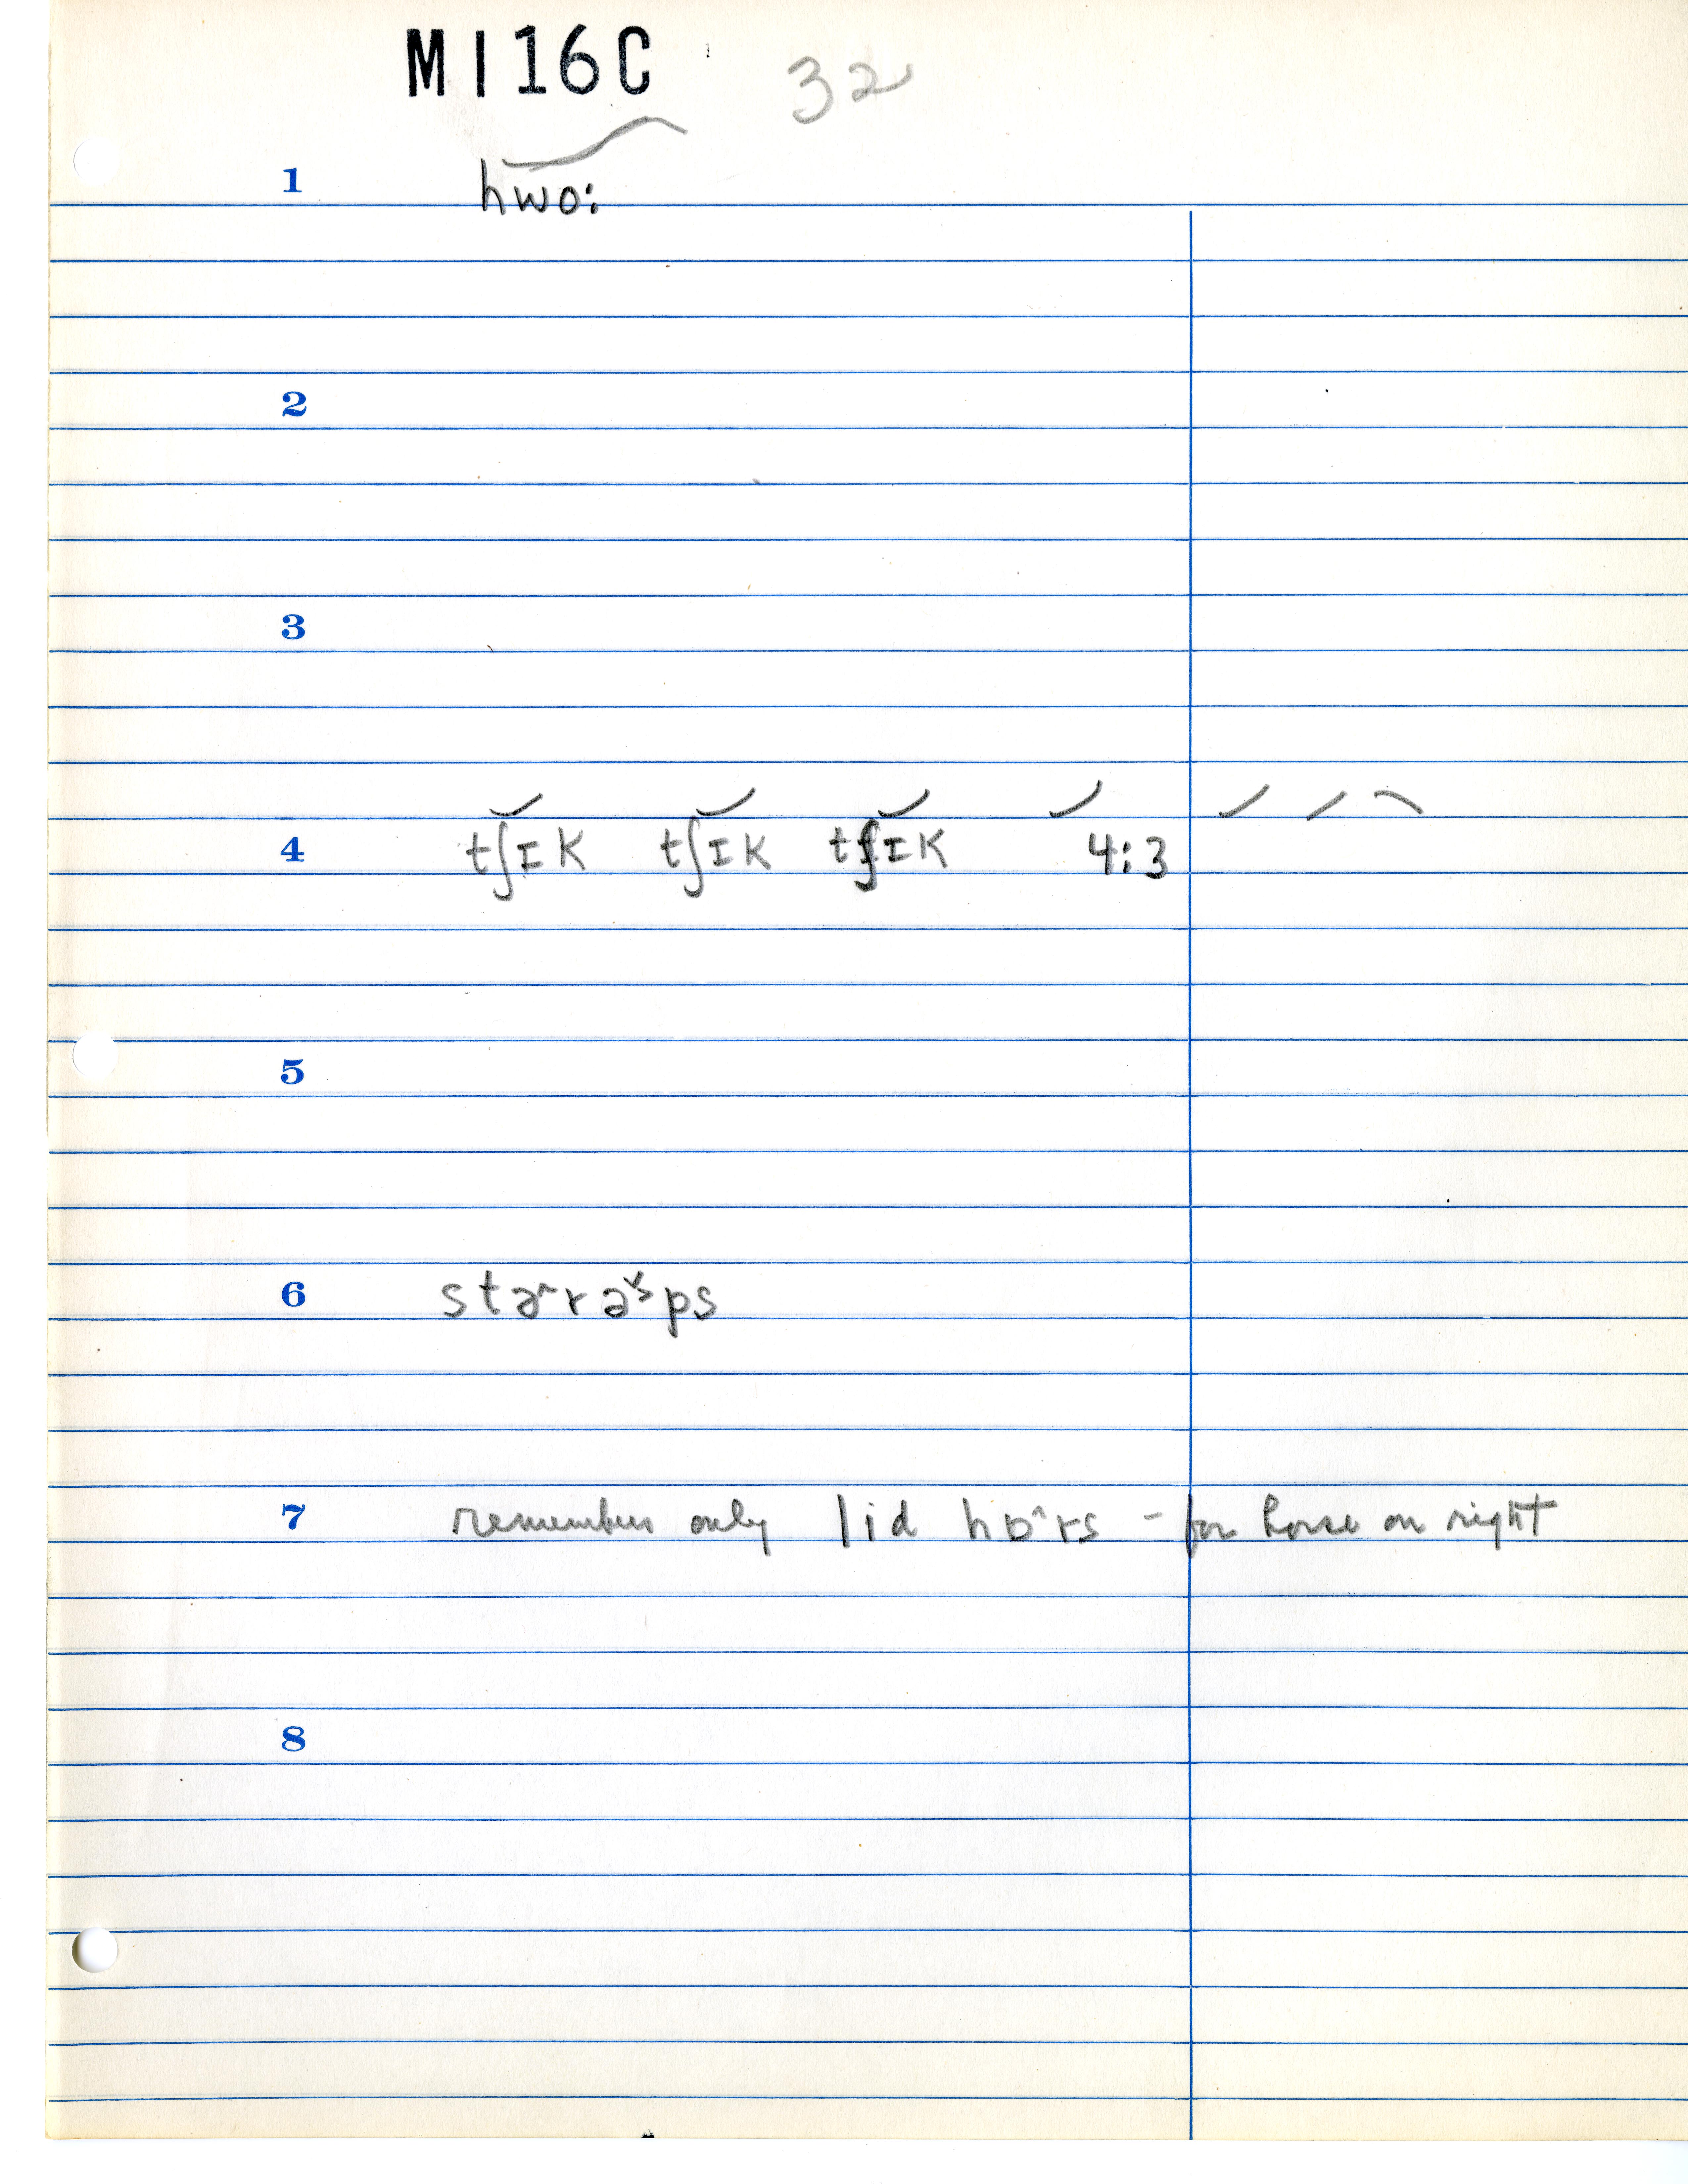 MI16C 32
1 hwo:
2
3
4 tʃɪk tʃɪk tʃɪk 4:3
5
6 stə^rə˅s ps
7 remembers only lid hɒ^rs – for horse on right
8